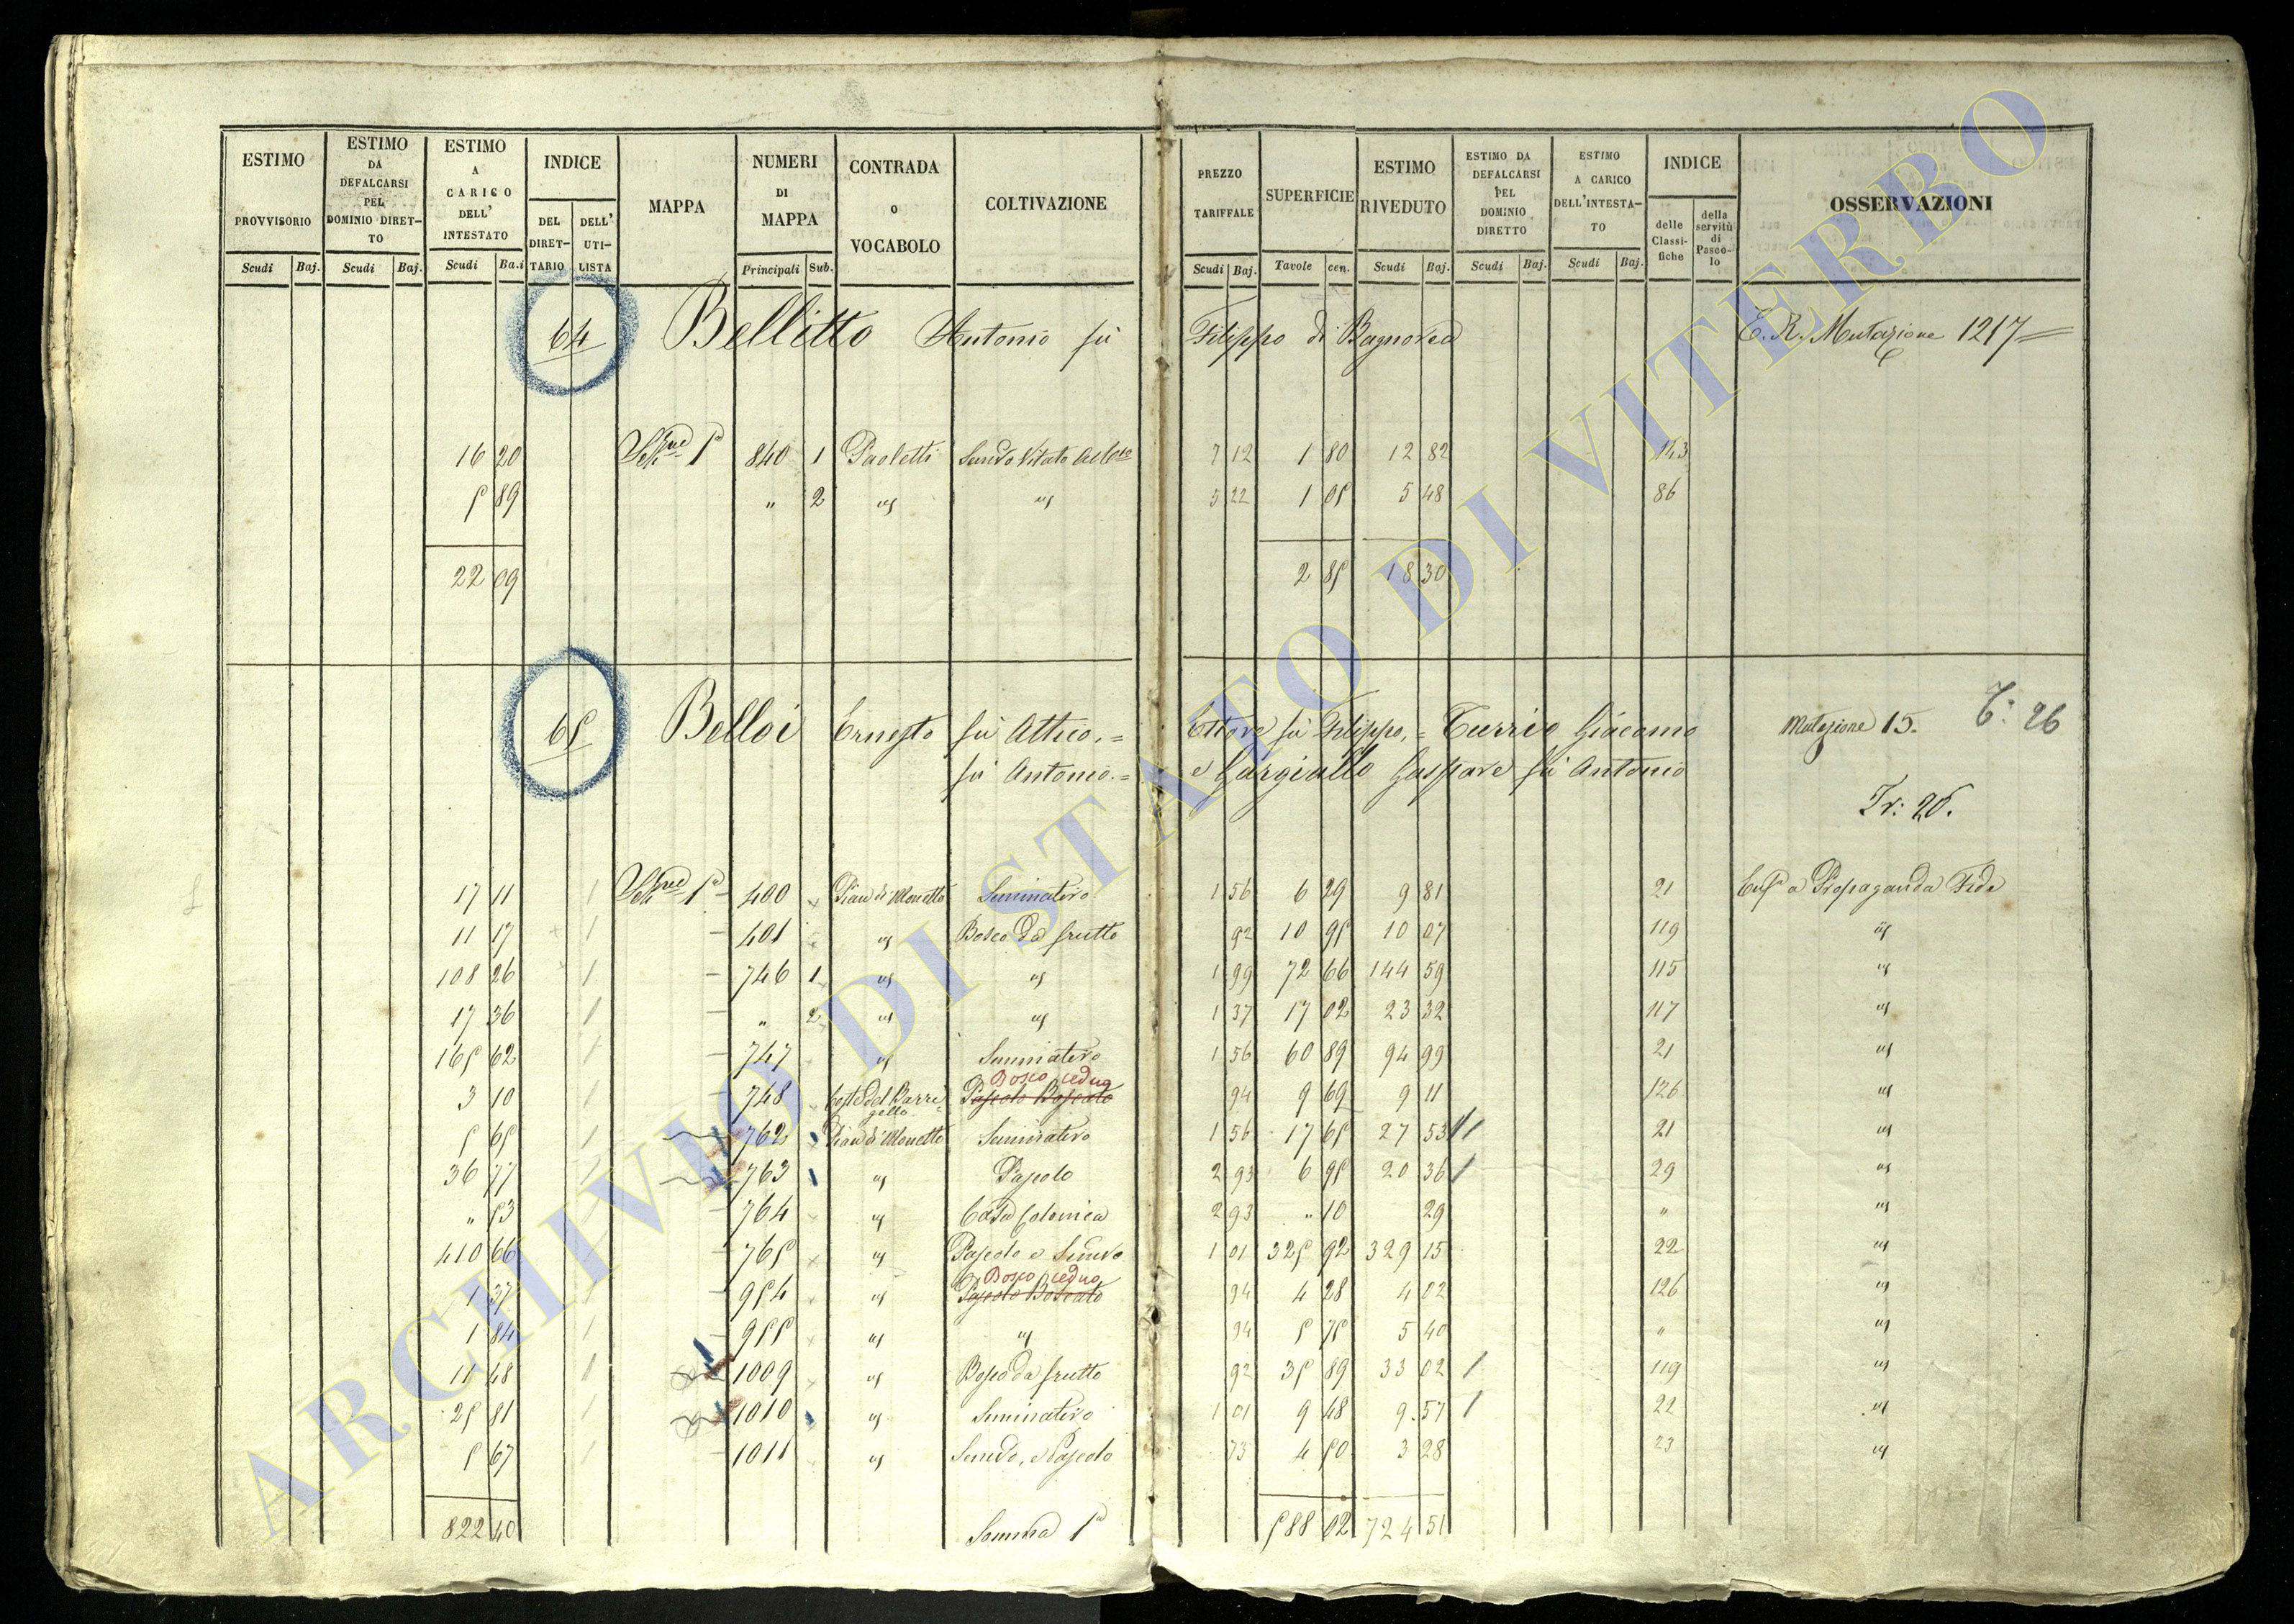 ESTIMO PROVVISORIO Scudi Baj.
ESTIMO DA DEFALCARSI PEL DOMINIO DIRETTO Scudi Baj.
ESTIMO A CARICO DELL' INTESTATO Scudi Ba.i
INDICE DEL DIRETTARIO DELL' UTILISTA
MAPPA
NUMERI DI MAPPA Principali Sub.
CONTRADA o VOCABOLO
COLTIVAZIONE
PREZZO TARIFFALE Scudi Baj.
SUPERFICIE Tavole cen.
ESTIMO RIVEDUTO Scudi Baj.
ESTIMO DA DEFALCARSI PEL DOMINIO DIRETTO Scudi Baj.
ESTIMO A CARICO DELL'INTESTATO Scudi Baj.
INDICE delle Classifiche della servitù di Pascolo
OSSERVAZIONI
64 Bellitto Antonio fù Filippo di Bagnorea E. R. Mutazione 1217
16 20 840 1 Paoletti 7 12 1 80 12 82 143
5 89 " 2 us us 5 22 1 05 5 48 86
22 09 2 85 18 30
65 Belloi Ernesto fù Attico = Ettore fù Filippo = Turrio Giacomo Mutazione 15. T: 26
fù Antonio = e Gargiullo Gaspare fù Antonio
Tr: 26.
17 11 1 400 Pian di Monetto Seminativo 1 56 6 29 9 81 21 a Propaganda Fide
11 17 1 401 us Bosco da frutto 92 10 95 10 07 119 us
108 26 1 746 1 us us 1 99 72 66 144 59 115 us
17 36 1 " 2 us us 1 37 17 02 23 32 117 us
165 62 1 747 us Seminativo 1 56 60 89 94 99 21 us
Bosco ceduo
3 10 1 748 Coste del Barrigello Pascolo Boscato 94 9 69 9 11 126 us
5 65 1 762 Pian di Monetto Seminativo 1 56 17 65 27 53 21 us
36 77 1 763 us Pascolo 2 93 6 95 20 36 29 us
" 53 1 764 us Casa Colonica 2 93 " 10 29 " us
410 66 1 765 us Pascolo e Semvo 1 01 325 92 329 15 22 us
Bosco ceduo
1 37 1 954 us Pascolo Boscato 94 4 28 4 02 126 us
1 84 1 955 us us 94 5 75 5 40 " us
11 48 1 1009 us Bosco da frutto 92 35 89 33 02 119 us
25 81 1 1010 us Seminativo 1 01 9 48 9 57 22 us
5 67 1 1011 us Semvo, e Pascolo 73 4 50 3 28 23 us
822 40 Somma 588 02 724 51
ARCHIVIO DI STATO DI VITERBO